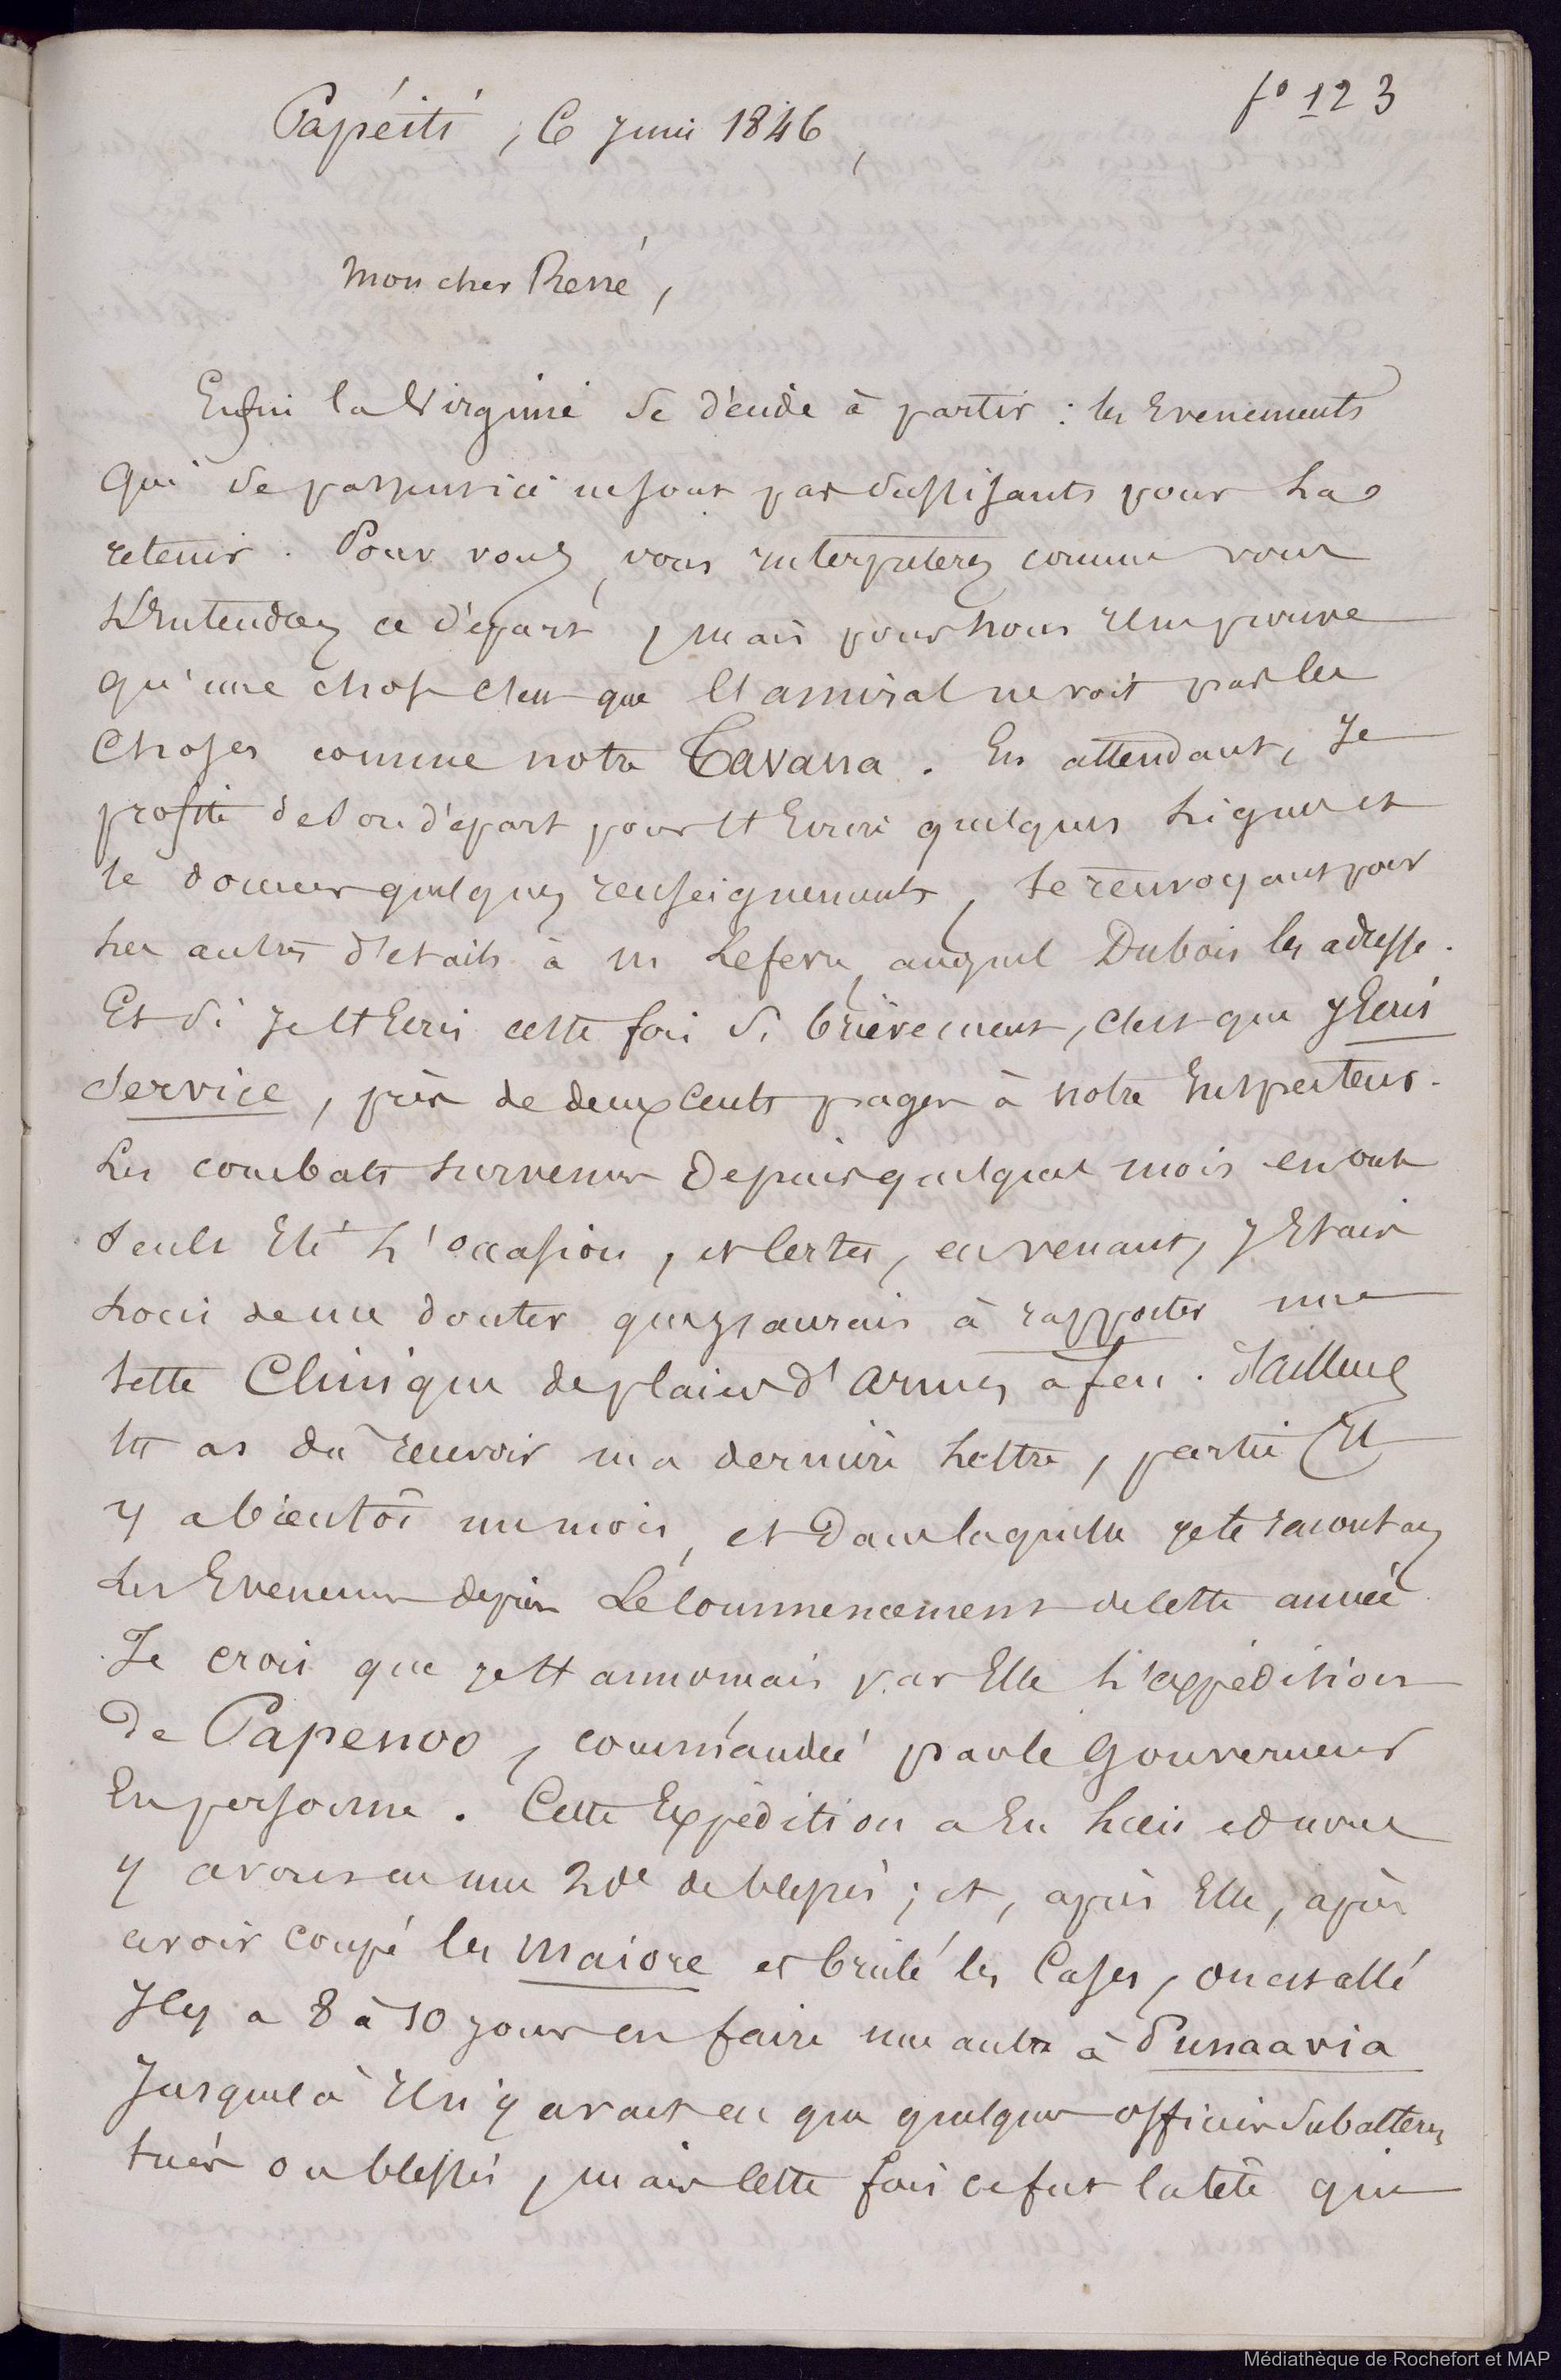 f° 123
Papéiti, 6 Juin 1846,
Mon cher René,
Enfin la Virginie se décide à partir : les Evenements
qui se passent ici ne sont pas suffisants pour La
retenir. Pour vous, vous interpreterez comme vous
L'Entendez ce départ, mais pour nous il ne prouve
qu'une chose c'est que l'amiral ne voit pas les
Choses comme notre Tavana. En attendant, Je
profite de son départ pour t'Ecrire quelques Lignes et
te donner quelques renseignements, te renvoyant pour
Les autres détails à M Lefevre, auquel Dubois les adresse.
Et si Je t'Ecris cette fois si brièvement, c'est que J'Ecris
Service, près de deux Cents pages à notre Inspecteur.
Les combats survenus depuis quelques mois en ont
seuls Eté L'occasion, et certes, en venant, J'Etais
Loin de me douter que J'aurais à rapporter une
telle Clinique de plaies d'armes à feu. D'ailleurs
tu as dû recevoir ma dernière Lettre, partie Il
y a bientôt un mois, et dans laquelle je te racontais
Les Evenemens depuis Le Commencement de cette année.
Je crois que je t'annonçais par Elle L'expédition
de Papenoo, commandée par le Gouverneur
En personne. Cette Expédition a Eu Lieu et nous
y avons eu une 20e de blessés; et, après Elle, après
avoir coupé les maiore et brulé les Cases, on est allé
Il y a 8 à 10 jours en faire une autre à Punaavia
Jusque là Il n'y avait eu que quelques officiers Subalternes
tués ou blessés, mais cette fois ce fut la tête qui
Médiathèque de Rochefort et MAP